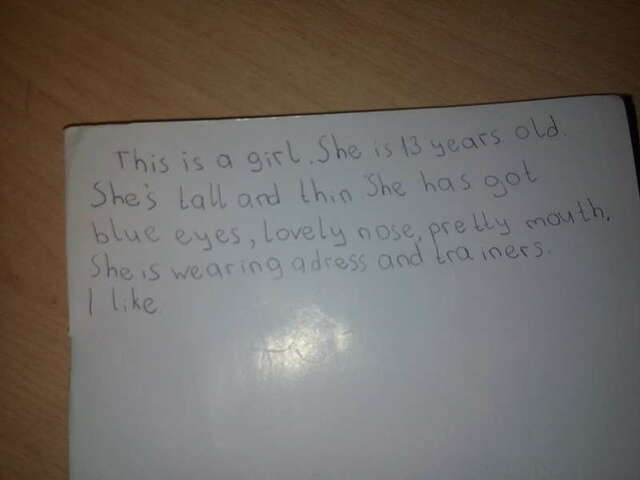 This is a girl. She is 13 years old.
She's tall and thin. She has got
blue eyes, lovely nose, pretty mouth.
She is wearing a dress and trainers.
I like